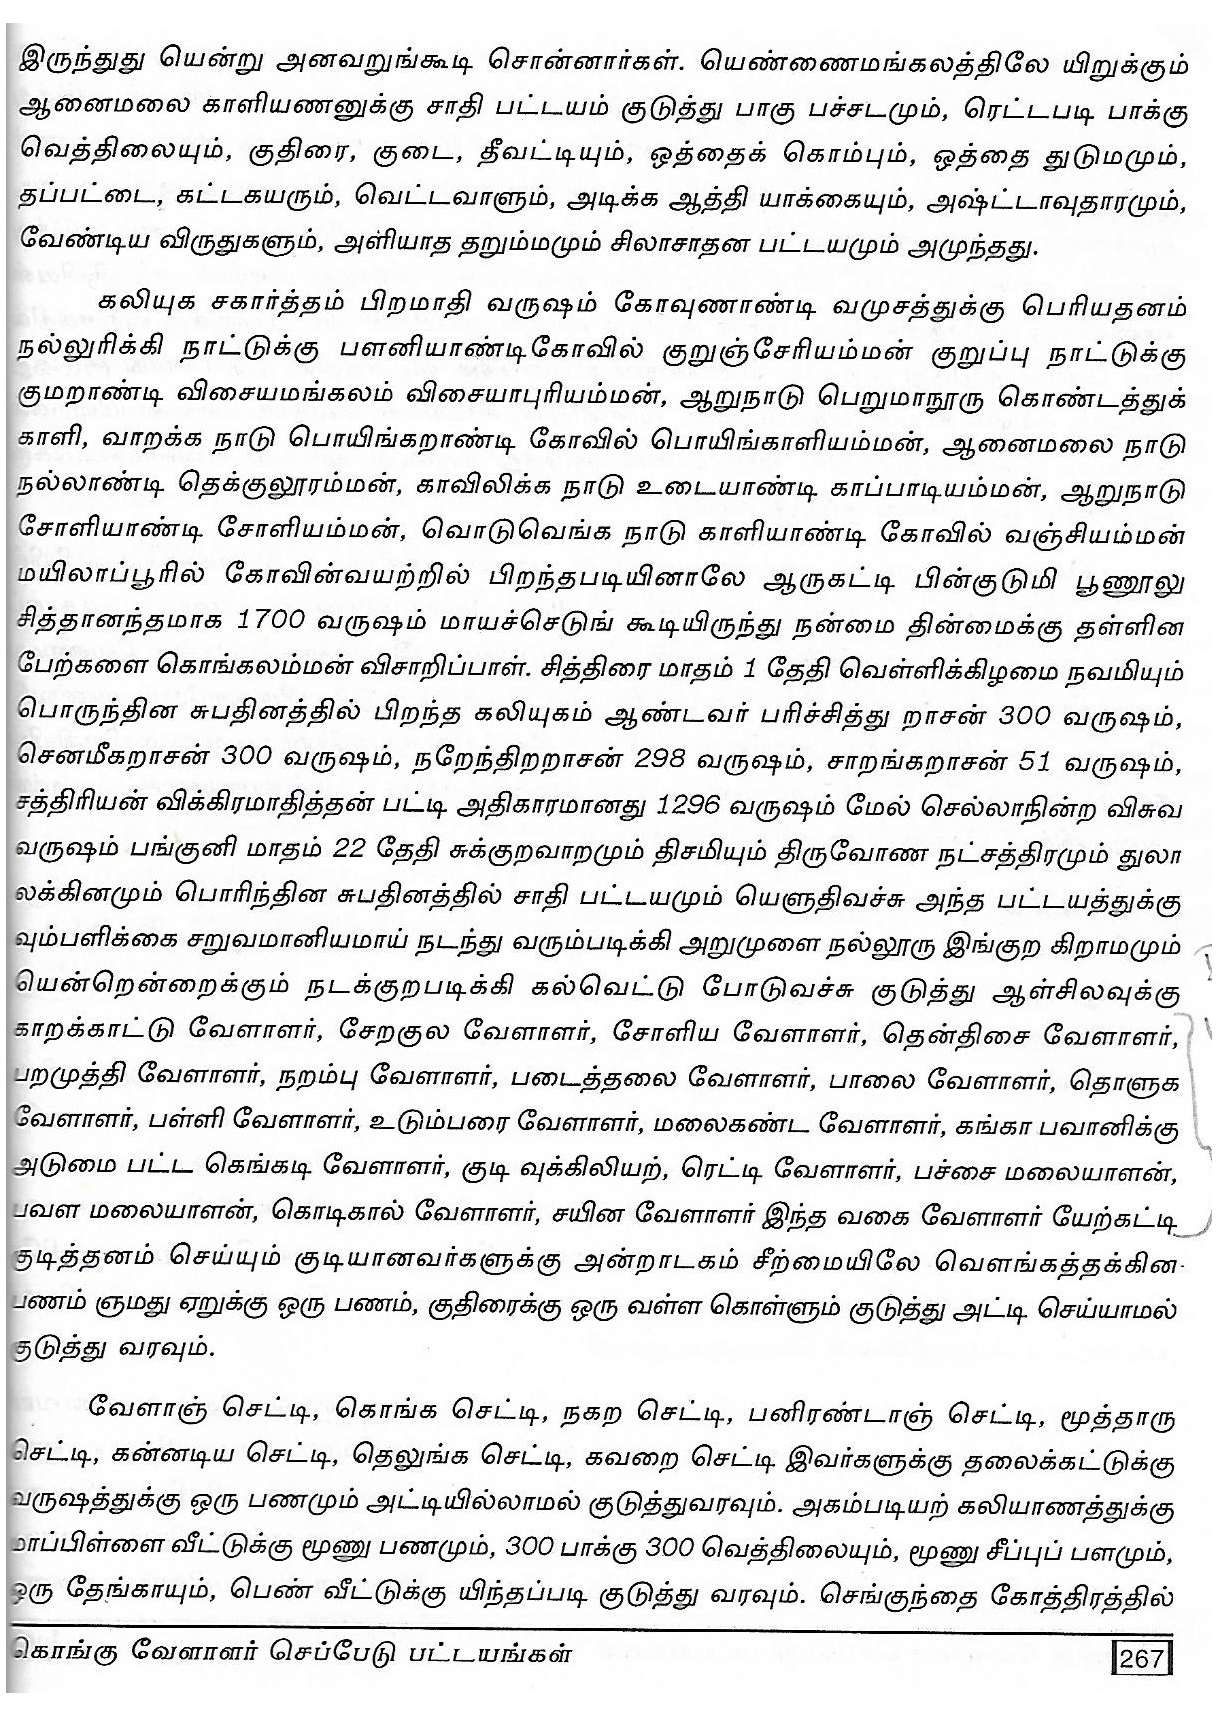 இருந்துது யென்று அனவறுங்கூடி சொன்னார்கள். யெண்ணைமங்கலத்திலே யிறுக்கும்
ஆனைமலை காளியணனுக்கு சாதி பட்டயம் குடுத்து பாகு பச்சடமும், ரெட்டபடி பாக்கு
வெத்திலையும், குதிரை, குடை, தீவட்டியும், ஒத்தைக் கொம்பும், ஒத்தை துடுமமும்,
தப்பட்டை, கட்டகயரும், வெட்டவாளும், அடிக்க ஆத்தி யாக்கையும், அஷ்ட்டாவுதாரமும்,
வேண்டிய விருதுகளும், அளியாத தறும்மமும் சிலாசாதன பட்டயமும் அமுந்தது.
கலியுக சகார்த்தம் பிறமாதி வருஷம் கோவுணாண்டி வமுசத்துக்கு பெரியதனம்
நல்லுரிக்கி நாட்டுக்கு பளனியாண்டிகோவில் குறுஞ்சேரியம்மன் குறுப்பு நாட்டுக்கு
குமறாண்டி விசையமங்கலம் விசையாபுரியம்மன், ஆறுநாடு பெறுமாநூரு கொண்டத்துக்
காளி, வாறக்க நாடு பொயிங்கறாண்டி கோவில் பொயிங்காளியம்மன், ஆனைமலை நாடு
நல்லாண்டி தெக்குலூரம்மன், காவிலிக்க நாடு உடையாண்டி காப்பாடியம்மன், ஆறுநாடு
சோளியாண்டி சோளியம்மன், வொடுவெங்க நாடு காளியாண்டி கோவில் வஞ்சியம்மன்
மயிலாப்பூரில் கோவின்வயற்றில் பிறந்தபடியினாலே ஆருகட்டி பின்குடுமி பூணூலு
சித்தானந்தமாக 1700 வருஷம் மாயச்செடுங் கூடியிருந்து நன்மை தின்மைக்கு தள்ளின
பேற்களை கொங்கலம்மன் விசாறிப்பாள். சித்திரை மாதம் 1 தேதி வெள்ளிக்கிழமை நவமியும்
பொருந்தின சுபதினத்தில் பிறந்த கலியுகம் ஆண்டவர் பரிச்சித்து றாசன் 300 வருஷம்,
செனமீகறாசன் 300 வருஷம், நறேந்திறறாசன் 298 வருஷம், சாறங்கறாசன் 51 வருஷம்,
சத்திரியன் விக்கிரமாதித்தன் பட்டி அதிகாரமானது 1296 வருஷம் மேல் செல்லாநின்ற விசுவ
வருஷம் பங்குனி மாதம் 22 தேதி சுக்குறவாறமும் திசமியும் திருவோண நட்சத்திரமும் துலா
லக்கினமும் பொரிந்தின சுபதினத்தில் சாதி பட்டயமும் யெளுதிவச்சு அந்த பட்டயத்துக்கு
வும்பளிக்கை சறுவமானியமாய் நடந்து வரும்படிக்கி அறுமுளை நல்லூரு இங்குற கிறாமமும்
யென்றென்றைக்கும் நடக்குறபடிக்கி கல்வெட்டு போடுவச்சு குடுத்து ஆள்சிலவுக்கு
காறக்காட்டு வேளாளர், சேறகுல வேளாளர், சோளிய வேளாளர், தென்திசை வேளாளர்,
பறமுத்தி வேளாளர், நறம்பு வேளாளர், படைத்தலை வேளாளர், பாலை வேளாளர், தொளுக
வேளாளர், பள்ளி வேளாளர், உடும்பரை வேளாளர், மலைகண்ட வேளாளர், கங்கா பவானிக்கு
அடுமை பட்ட கெங்கடி வேளாளர், குடி வுக்கிலியற், ரெட்டி வேளாளர், பச்சை மலையாளன்,
பவள மலையாளன், கொடிகால் வேளாளர், சயின வேளாளர் இந்த வகை வேளாளர் யேற்கட்டி
குடித்தனம் செய்யும் குடியானவர்களுக்கு அன்றாடகம் சீற்மையிலே வெளங்கத்தக்கின
பணம் ஞமது ஏறுக்கு ஒரு பணம், குதிரைக்கு ஒரு வள்ள கொள்ளும் குடுத்து அட்டி செய்யாமல்
குடுத்து வரவும்.
வேளாஞ் செட்டி, கொங்க செட்டி, நகற செட்டி, பனிரண்டாஞ் செட்டி, மூத்தாரு
செட்டி, கன்னடிய செட்டி, தெலுங்க செட்டி, கவறை செட்டி இவர்களுக்கு தலைக்கட்டுக்கு
வருஷத்துக்கு ஒரு பணமும் அட்டியில்லாமல் குடுத்துவரவும். அகம்படியற் கலியாணத்துக்கு
மாப்பிள்ளை வீட்டுக்கு மூணு பணமும், 300 பாக்கு 300 வெத்திலையும், மூணு சீப்புப் பளமும்,
ஒரு தேங்காயும், பெண் வீட்டுக்கு யிந்தப்படி குடுத்து வரவும். செங்குந்தை கோத்திரத்தில்
கொங்கு வேளாளர் செப்பேடு பட்டயங்கள்
267